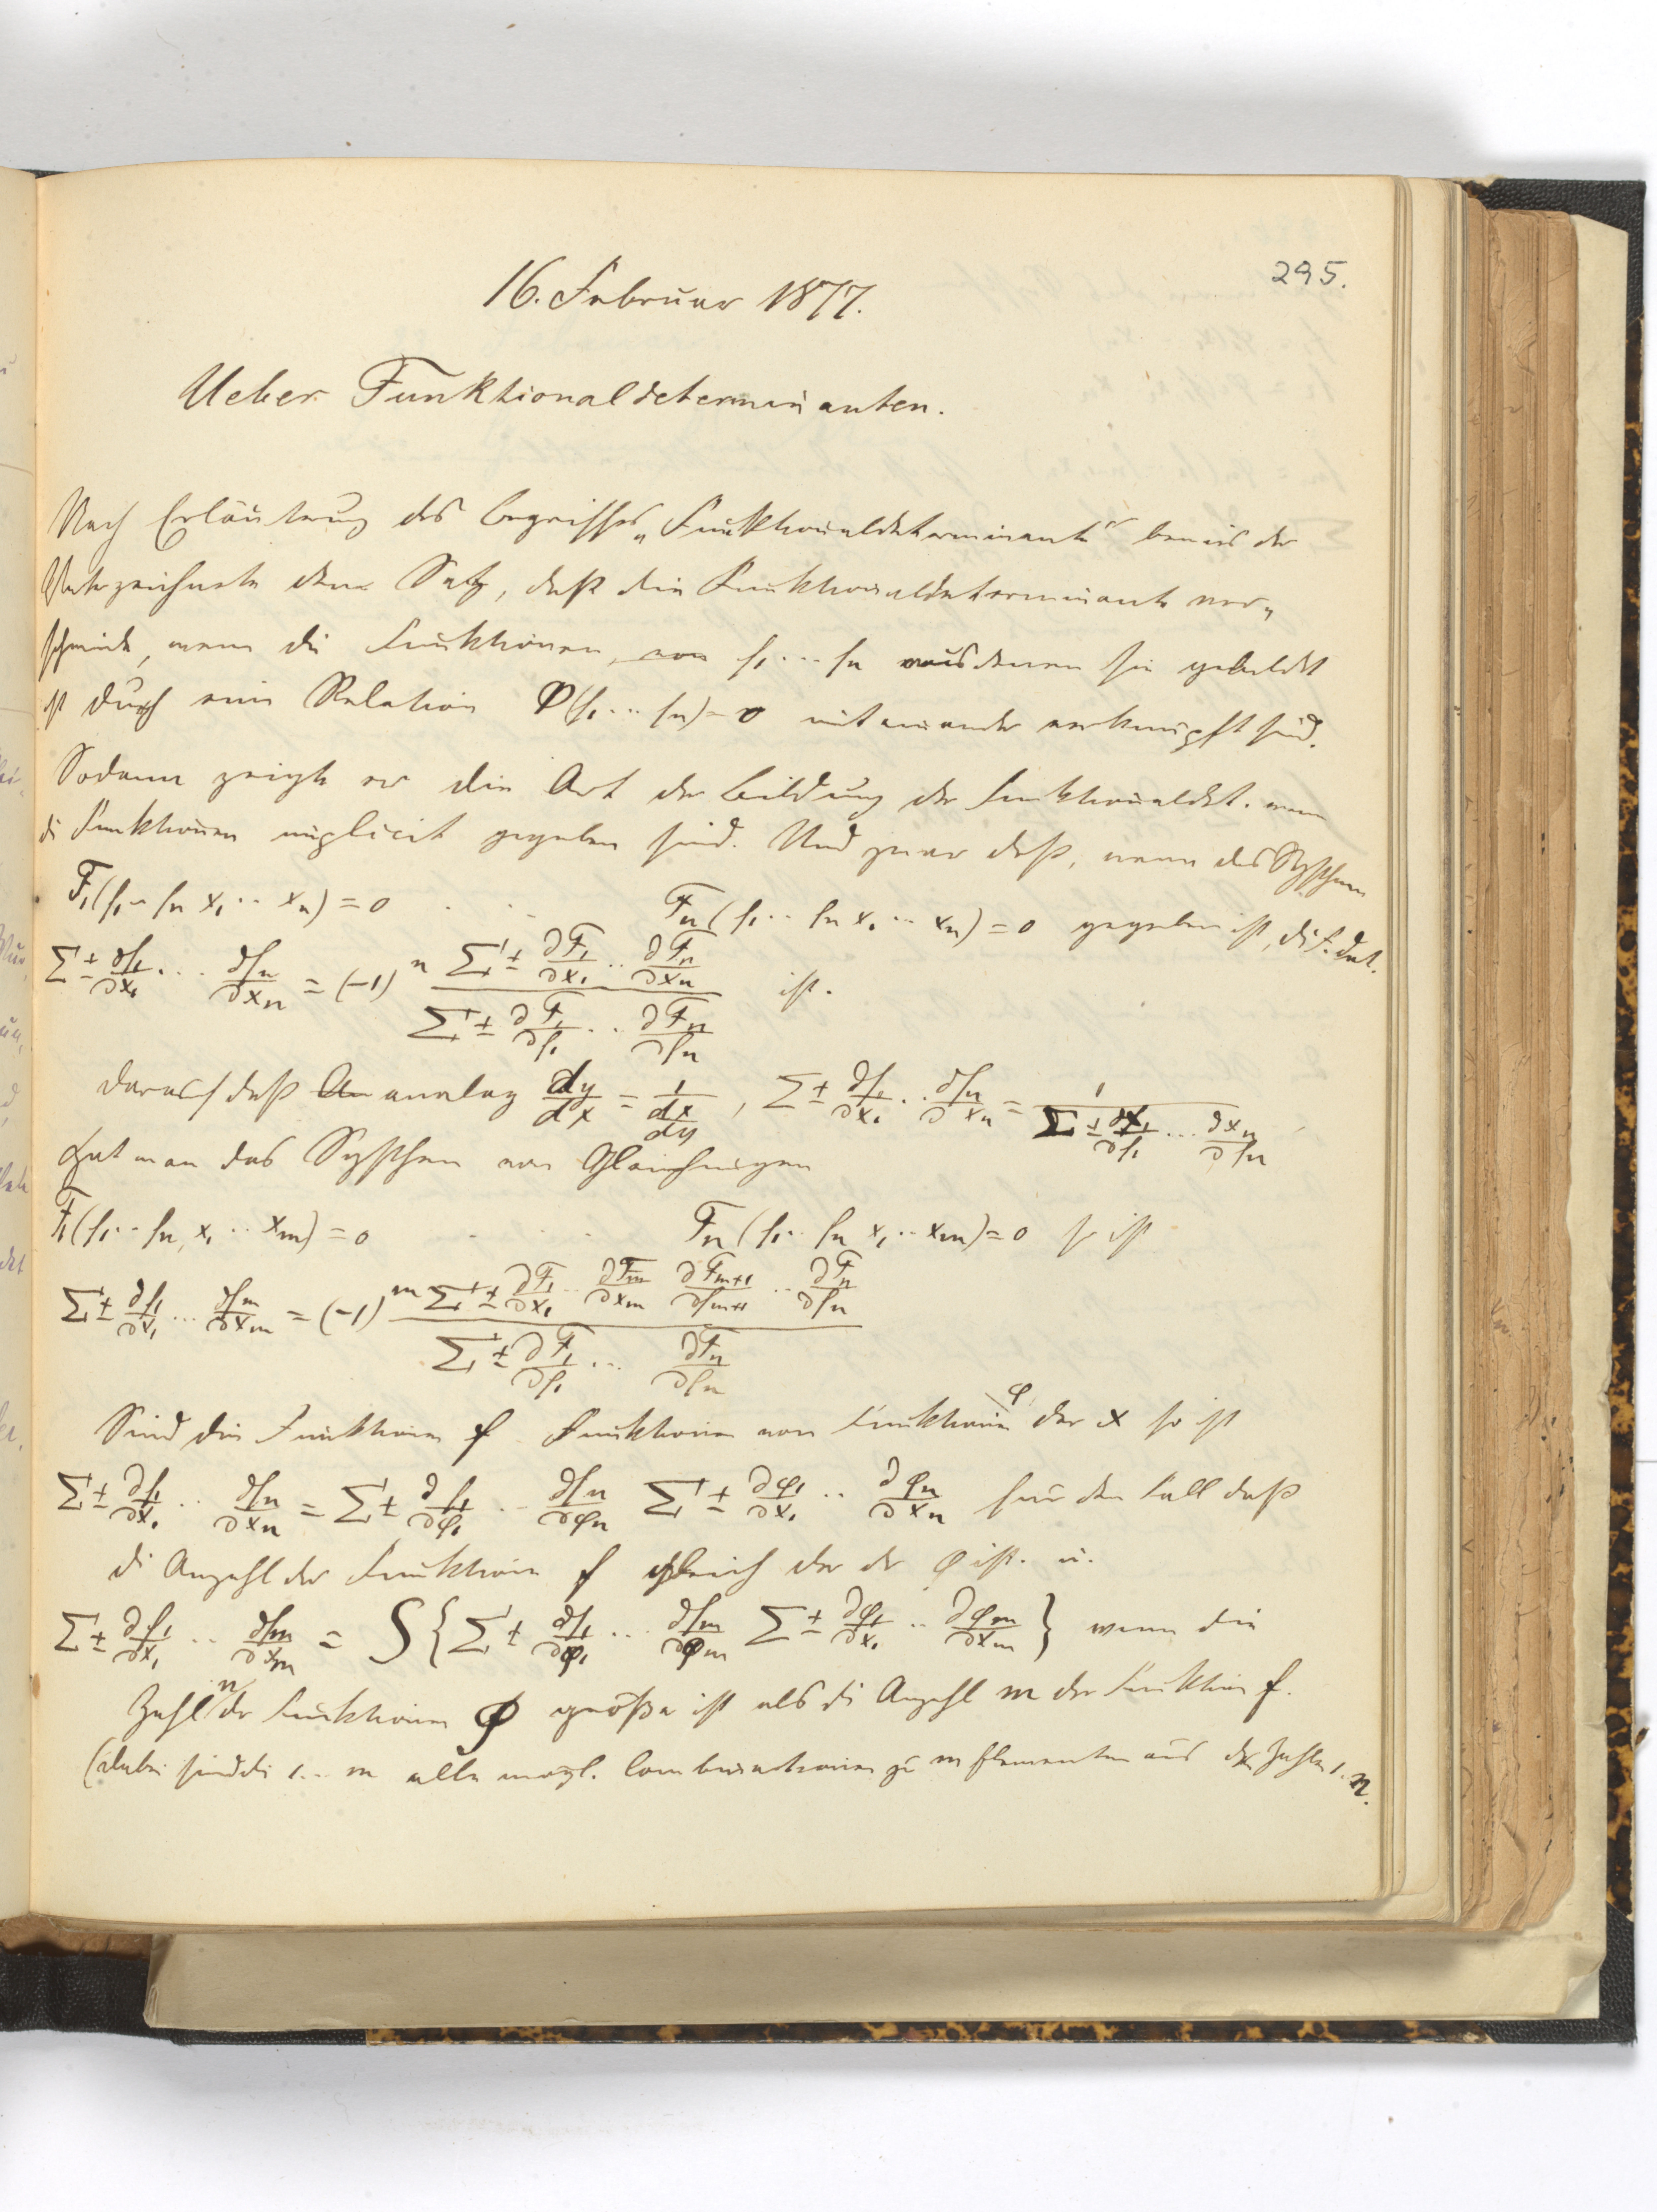 295.
16. Februar 1877.
Ueber Funktionaldeterminanten.
Nach Erläuterung des Begriffes „Funktionaldeterminante“ bewies der
Unterzeichnete den Satz, daß die Funktionaldeterminante ver„
schwindet, wenn die Funktionen, von f₁ ... fₙ aus denen sie gebildet
ist durch eine Relation Φ(f₁ ... fₙ) = 0 mit einander verknüpft sind.
Sodann zeigte er die Art der Bildung der Funktionaldet. wenn
di Funktionen implicit gegeben sind. Und zwar daß, wenn das System
F₁(f₁ .. fₙ x₁ .. xₙ) = 0 . . . Fₙ(f₁ .. fₙ x₁ .. xₙ) = 0 gegeben ist, di F. Det.
Σ ± ∂f₁/∂x₁ ... ∂fₙ/∂xₙ = (−1)ⁿ (Σ ± ∂F₁/∂x₁ .. ∂Fₙ/∂xₙ) / (Σ ± ∂F₁/∂f₁ .. ∂Fₙ/∂fₙ) ist.
darauf daß analog dy/dx = 1/(dx/dy), Σ ± ∂f₁/∂x₁ .. ∂fₙ/∂xₙ = 1/(Σ ± ∂x₁/∂f₁ ... ∂xₙ/∂fₙ)
Hat man das System von Gleichungen
F₁(f₁ .. fₙ, x₁ .. xₘ) = 0 . . . Fₙ(f₁ .. fₙ x₁ .. xₘ) = 0 so ist
Σ ± ∂f₁/∂x₁ ... ∂fₘ/∂xₘ = (−1)ᵐ (Σ ± ∂F₁/∂x₁ .. ∂Fₘ/∂xₘ ∂Fₘ₊₁/∂fₘ₊₁ .. ∂Fₙ/∂fₙ) / (Σ ± ∂F₁/∂f₁ ... ∂Fₙ/∂fₙ)
Sind die Funktionen f Funktionen von Funktionen φ der x so ist
Σ ± ∂f₁/∂x₁ .. ∂fₙ/∂xₙ = Σ ± ∂f₁/∂φ₁ .. ∂fₙ/∂φₙ Σ ± ∂φ₁/∂x₁ .. ∂φₙ/∂xₙ für den Fall daß
di Anzahl der Funktionen f gleich der der φ ist. u.
Σ ± ∂f₁/∂x₁ .. ∂fₘ/∂xₘ = S{Σ ± ∂f₁/∂φ₁ ... ∂fₘ/∂φₘ Σ ± ∂φ₁/∂x₁ .. ∂φₘ/∂xₘ} wenn die
Zahl n der Funktionen φ größer ist als di Anzahl m der Funktion f.
(dabei sind di 1 .. m alle mögl. Combinationen zu m Elementen aus der Zahlen 1 .. n.